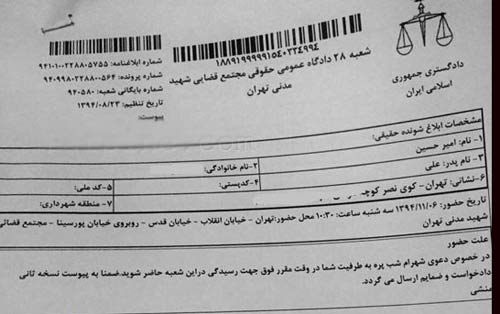 دادگستری جمهوری
اسلامی ایران
۱۸۸۹۱۹۹۹۹۹۱۵۴۰۳۳۴۹۹۴
شعبه ۲۸ دادگاه عمومی حقوقی مجتمع قضایی شهید
مدنی تهران
شماره ابلاغنامه: ۹۴۱۰۱۰۰۲۲۸۸۰۵۷۵۵
شماره پرونده: ۹۴۰۹۹۸۰۲۲۸۸۰۰۵۶۴
شماره بایگانی شعبه: ۹۴۰۵۸۰
تاریخ تنظیم: ۱۳۹۴/۰۸/۲۳
پیوست:
مشخصات ابلاغ شونده حقیقی:
۱- نام: امیر حسین
۲- نام خانوادگی:
۳- نام پدر: علی
۴- کدپستی:
۵- کد ملی:
۶- نشانی: تهران - کوی نصر کوچه
۷- منطقه شهرداری:
تاریخ حضور: ۱۳۹۴/۱۱/۰۶ سه شنبه ساعت: ۱۰:۳۰ محل حضور: تهران - خیابان انقلاب - خیابان قدس - روبروی خیابان پورسینا - مجتمع قضائی
شهید مدنی تهران
علت حضور
در خصوص دعوی شهرام شب پره به طرفیت شما در وقت مقرر فوق جهت رسیدگی دراین شعبه حاضر شوید.ضمنا به پیوست نسخه ثانی
دادخواست و ضمایم ارسال می گردد.
منشی